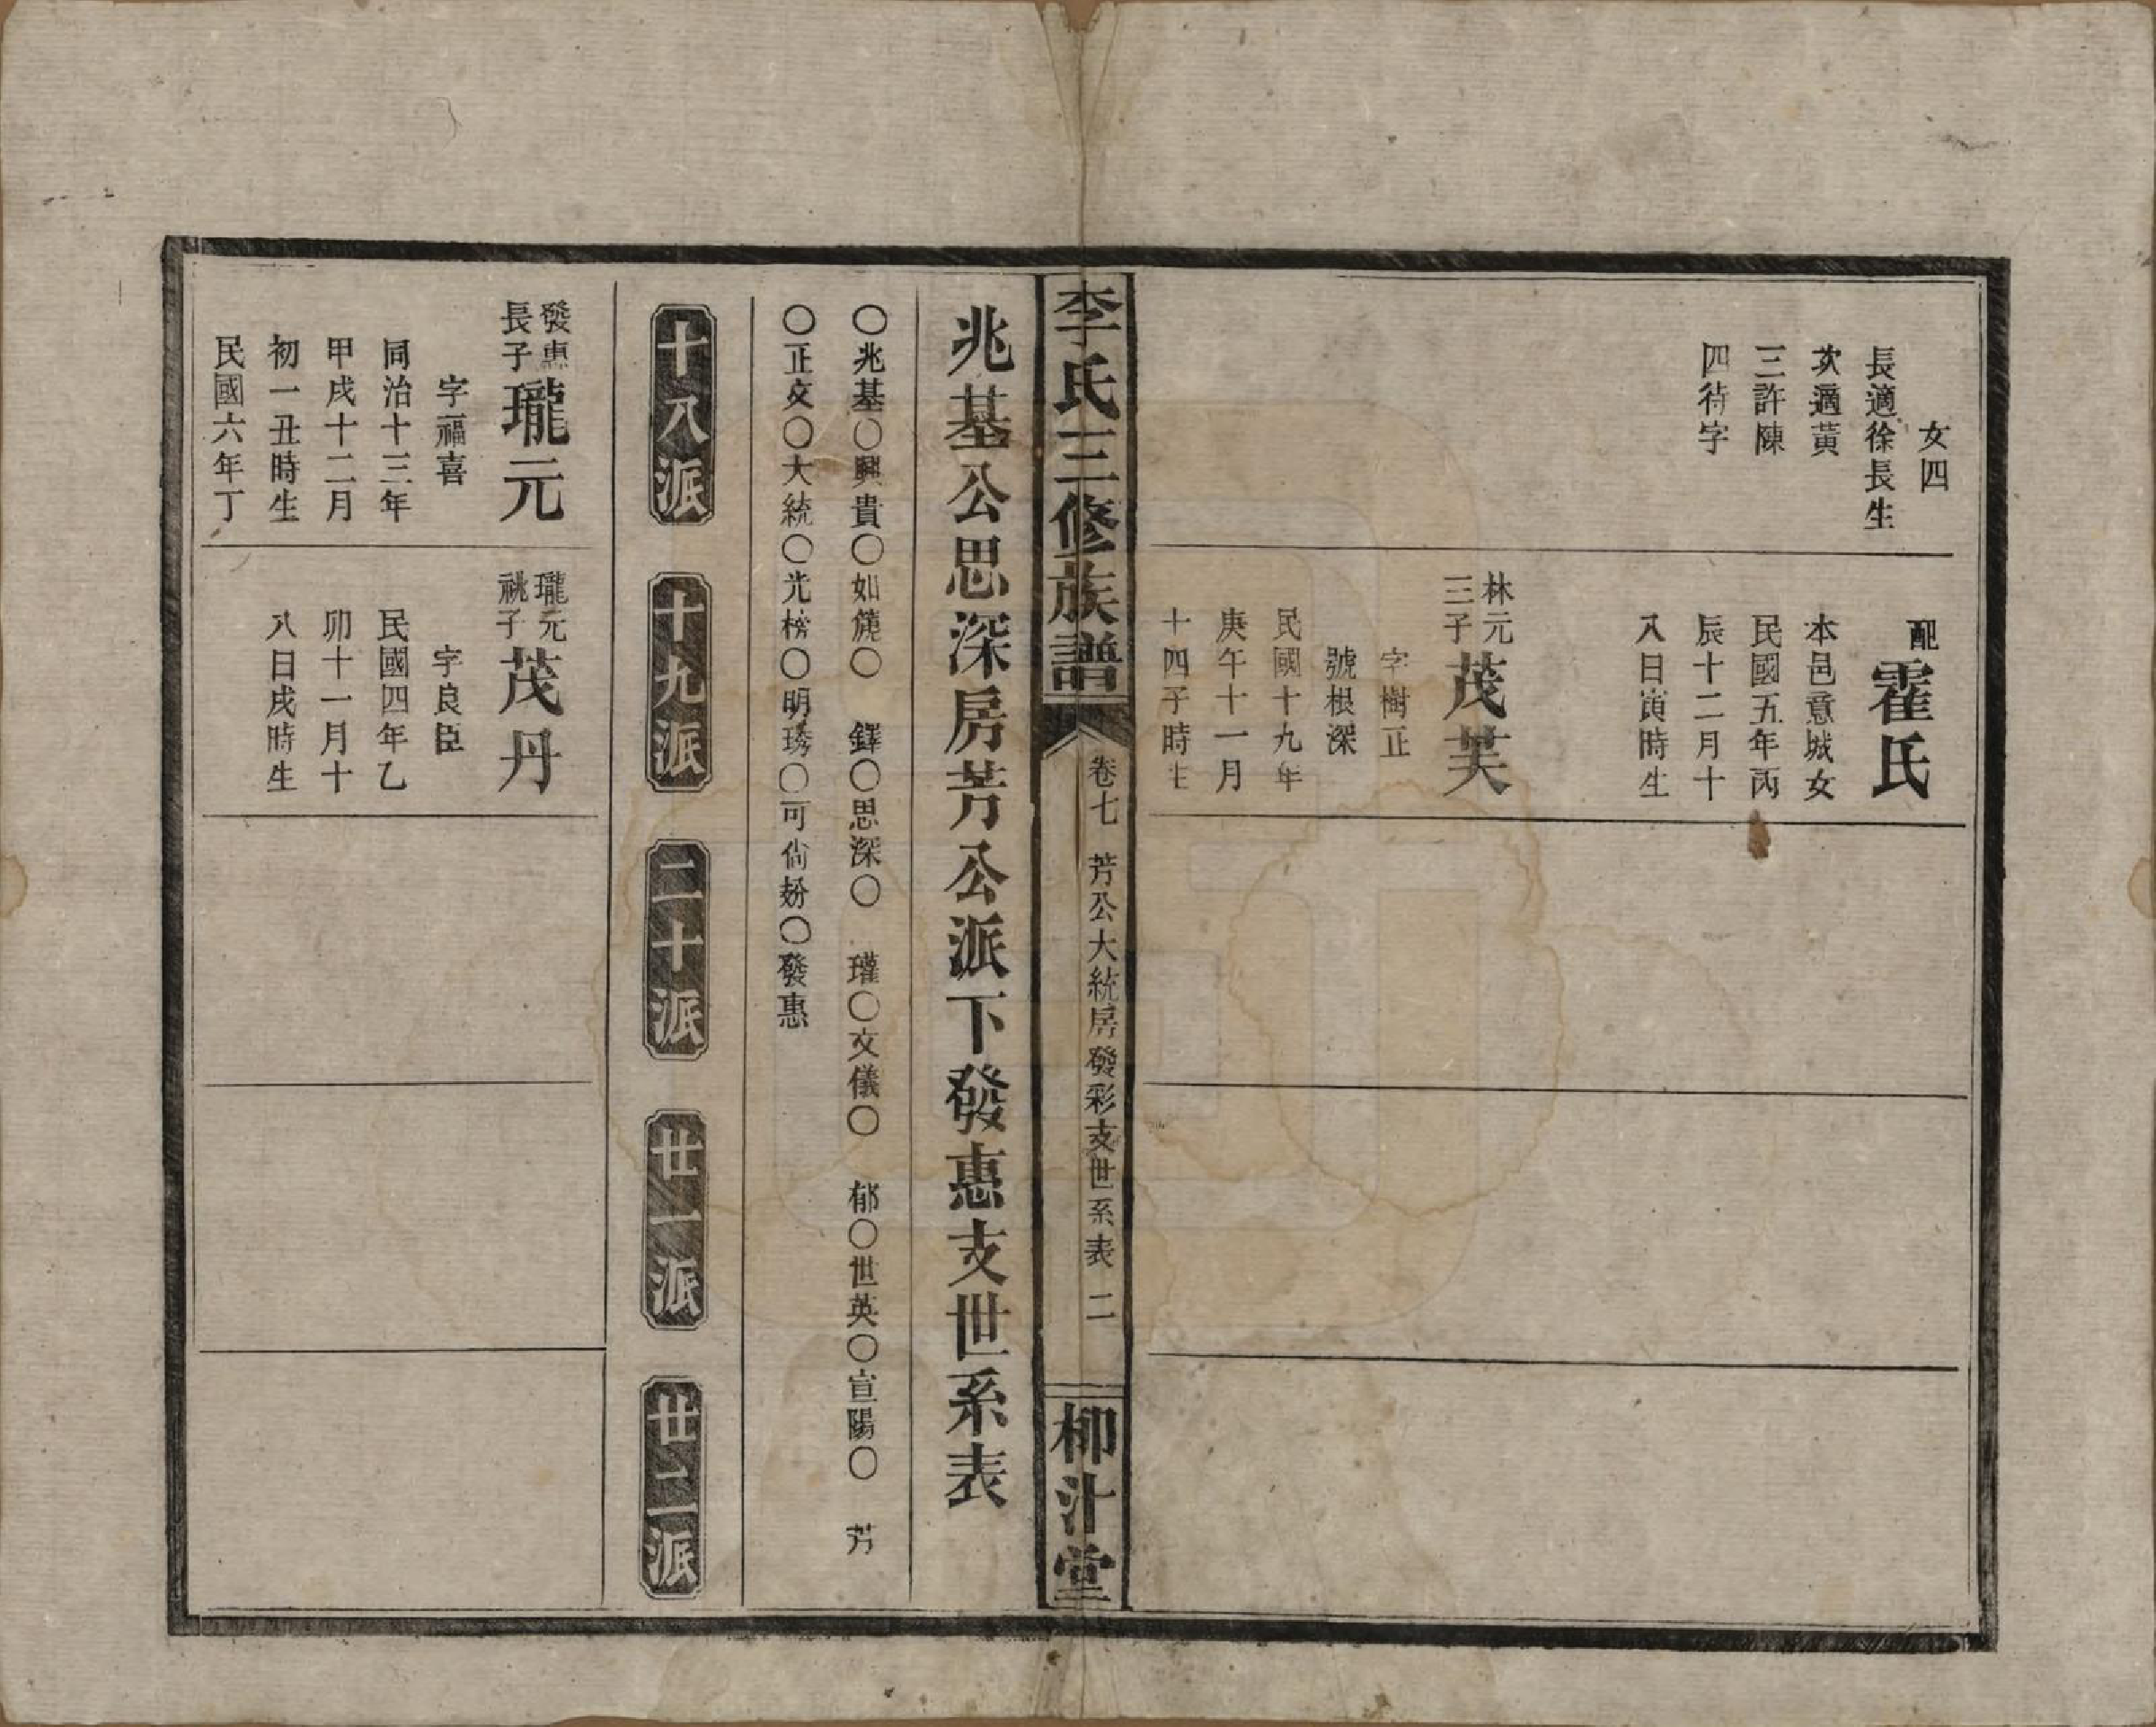 女四
長適徐長生
次適黃
三許陳
四待字
配霍氏
本邑意城女
民國五年丙
辰十二月十
八日寅時生
林元
三子
茂芙
字樹正
號根深
民國十九年
庚午十一月
十四子時生
李氏三修族譜
卷七 芳公大統房發彩支世系表 二
柳汁堂
兆基公思深房芳公派下發惠支世系表
〇兆基〇興貴〇如簏〇 鐸〇思深〇 瓘〇文儀〇 郁〇世英〇宣陽〇 芳
〇正文〇大統〇光榜〇明琇〇可尙〇發惠
十八派 十九派 二十派 廿一派 廿二派
發惠
長子
瓏元
字福喜
同治十三年
甲戌十二月
初一丑時生
民國六年丁
瓏元
祧子
茂丹
字良臣
民國四年乙
卯十一月十
八日戌時生